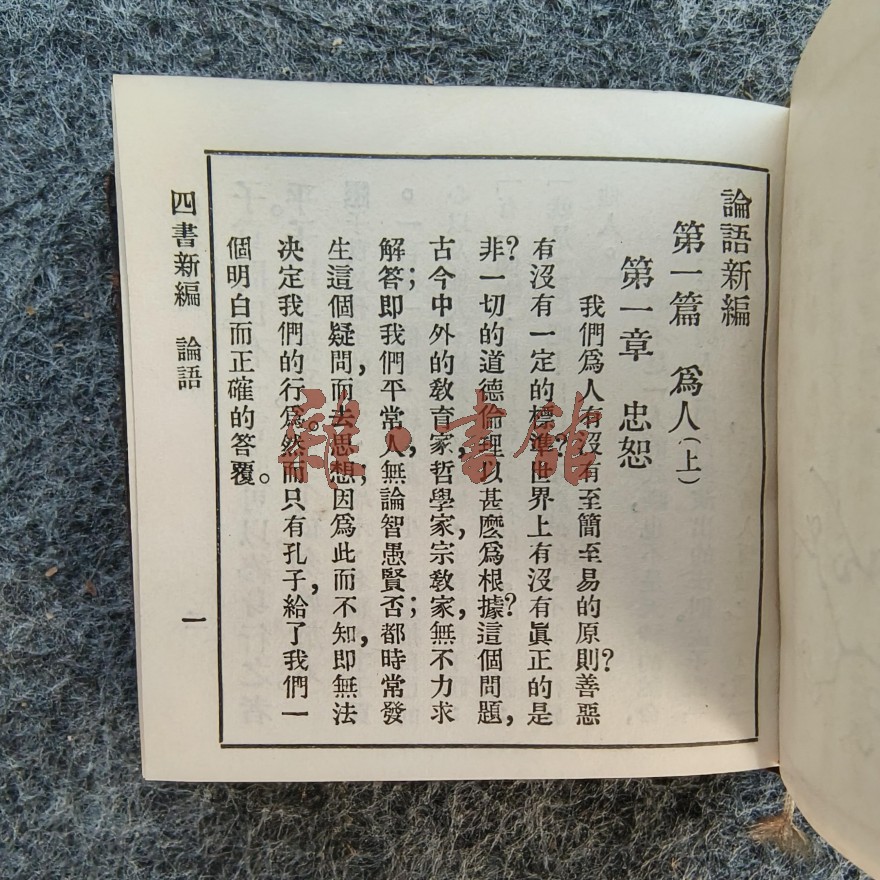 論語新編
第一篇　爲人(上)
第一章　忠恕
我們爲人有沒有至簡至易的原則?善惡
有沒有一定的標準?世界上有沒有眞正的是
非?一切的道德倫理以甚麼爲根據?這個問題,
古今中外的敎育家,哲學家,宗敎家,無不力求
解答;即我們平常人,無論智愚賢否;都時常發
生這個疑問,而去思想;因爲此而不知,即無法
决定我們的行爲。然而只有孔子,給了我們一
個明白而正確的答覆。
四書新編　論語
一
雜·書館